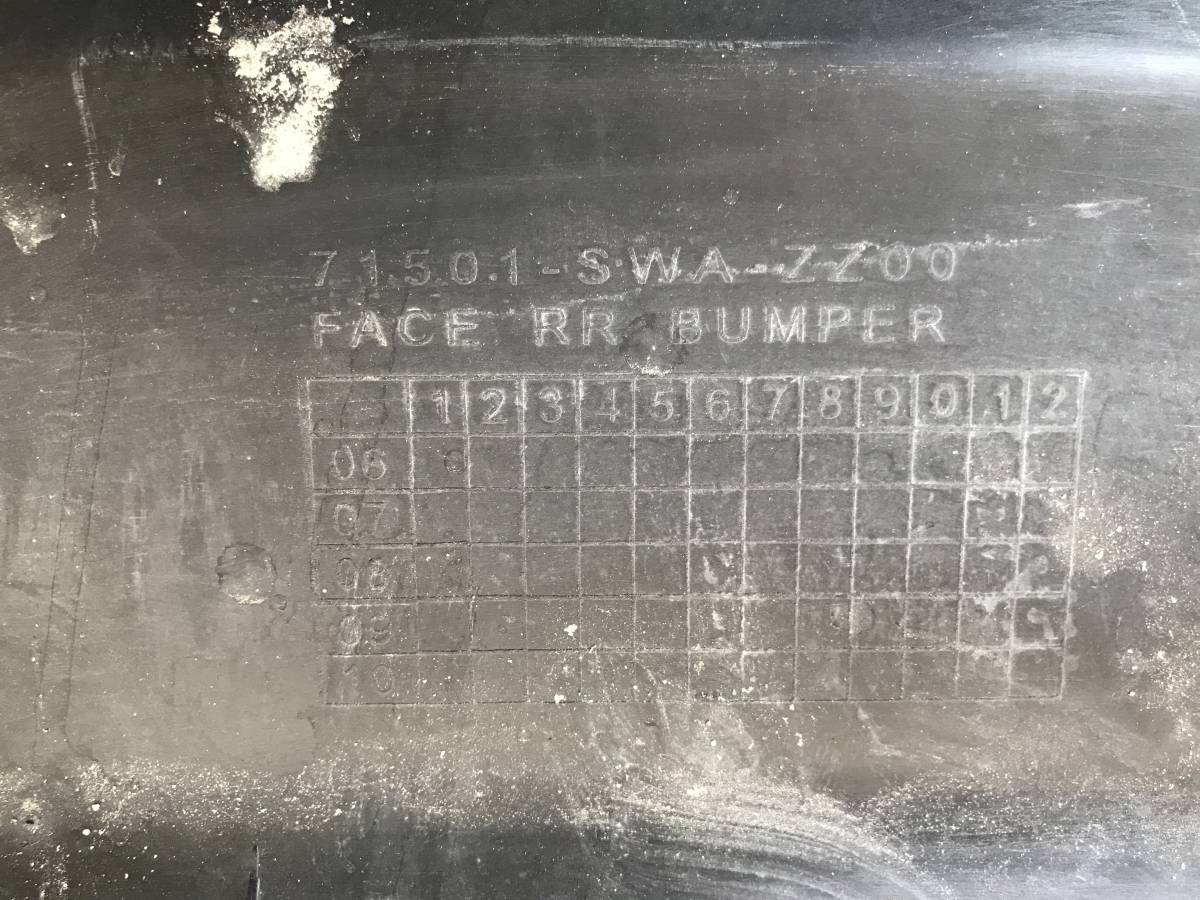 71501-SWA-ZZ00
FACE RR BUMPER
1 2 3 4 5 6 7 8 9 0 1 2
06
07
08
09
10